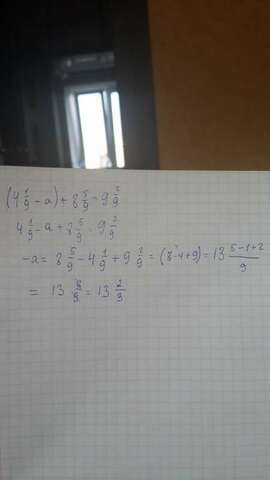 (4 1/9 - a) + 8 5/9 - 9 2/9
4 1/9 - a + 8 5/9 - 9 2/9
-a = 8 5/9 - 4 1/9 + 9 2/9 = (8-4+9) = 13 (5-1+2)/9
= 13 6/9 = 13 2/3